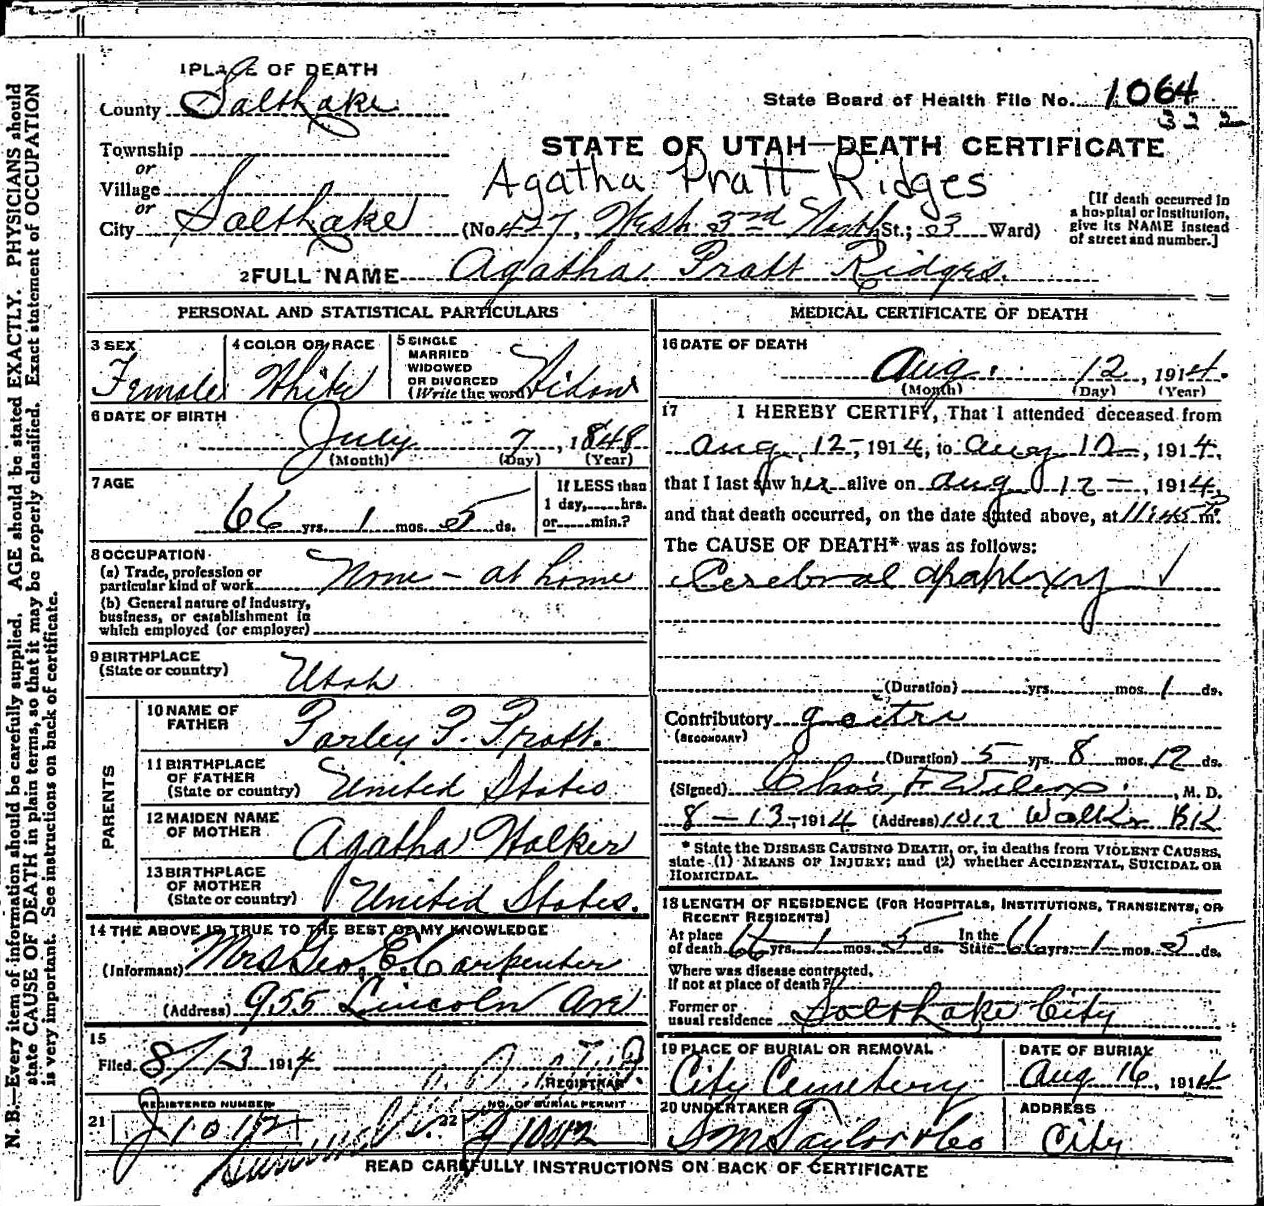 N. B.—Every item of information should be carefully supplied. AGE should be stated EXACTLY. PHYSICIANS should
state CAUSE OF DEATH in plain terms, so that it may be properly classified. Exact statement of OCCUPATION
is very important. See instructions on back of certificate.
1 PLACE OF DEATH
County Salt Lake
State Board of Health File No. 1064
332
Township
or
Village
or
City Salt Lake
STATE OF UTAH—DEATH CERTIFICATE
Agatha Pratt Ridges
(No. 427, West 3rd North St.; 23 Ward)
[If death occurred in
a hospital or institution,
give its NAME instead
of street and number.]
2 FULL NAME Agatha Pratt Ridges.
PERSONAL AND STATISTICAL PARTICULARS
3 SEX Female
4 COLOR OR RACE White
5 SINGLE
MARRIED
WIDOWED
OR DIVORCED
(Write the word) Widow
6 DATE OF BIRTH
July 7, 1848
(Month) (Day) (Year)
7 AGE
66 yrs. 1 mos. 5 ds.
If LESS than
1 day,......hrs.
or......min.?
8 OCCUPATION
(a) Trade, profession or
particular kind of work None - at home
(b) General nature of industry,
business, or establishment in
which employed (or employer)
9 BIRTHPLACE
(State or country) Utah
PARENTS
10 NAME OF
FATHER Parley P. Pratt.
11 BIRTHPLACE
OF FATHER
(State or country) United States
12 MAIDEN NAME
OF MOTHER Agatha Walker
13 BIRTHPLACE
OF MOTHER
(State or country) United States.
14 THE ABOVE IS TRUE TO THE BEST OF MY KNOWLEDGE
(Informant) Mrs Geo. E. Carpenter
(Address) 955 Lincoln Ave
15
Filed 8/13 1914
REGISTRAR
21 REGISTERED NUMBER
J1012
22 NO. OF BURIAL PERMIT
J1042
MEDICAL CERTIFICATE OF DEATH
16 DATE OF DEATH
Aug. 12, 1914.
(Month) (Day) (Year)
17 I HEREBY CERTIFY, That I attended deceased from
Aug 12-, 1914, to Aug 12-, 1914,
that I last saw her alive on Aug 12-, 1914,
and that death occurred, on the date stated above, at 11:45 P m.
The CAUSE OF DEATH* was as follows:
Cerebral apoplexy ✓
(Duration) yrs. mos. 1 ds.
Contributory goitre
(SECONDARY)
(Duration) 5 yrs 8 mos. 12 ds.
(Signed) Chas. F. Wilcox, M. D.
8-13-1914 (Address) 1012 Walker Bk
* State the DISEASE CAUSING DEATH, or, in deaths from VIOLENT CAUSES,
state (1) MEANS OF INJURY; and (2) whether ACCIDENTAL, SUICIDAL OR
HOMICIDAL.
18 LENGTH OF RESIDENCE (FOR HOSPITALS, INSTITUTIONS, TRANSIENTS, OR
RECENT RESIDENTS)
At place
of death 66 yrs. 1 mos. 5 ds. In the
State 66 yrs. 1 mos. 5 ds.
Where was disease contracted,
If not at place of death?
Former or
usual residence Salt Lake City
19 PLACE OF BURIAL OR REMOVAL
City Cemetery
DATE OF BURIAL
Aug 16, 1914
20 UNDERTAKER
S M Taylor & Co
ADDRESS
City
READ CAREFULLY INSTRUCTIONS ON BACK OF CERTIFICATE